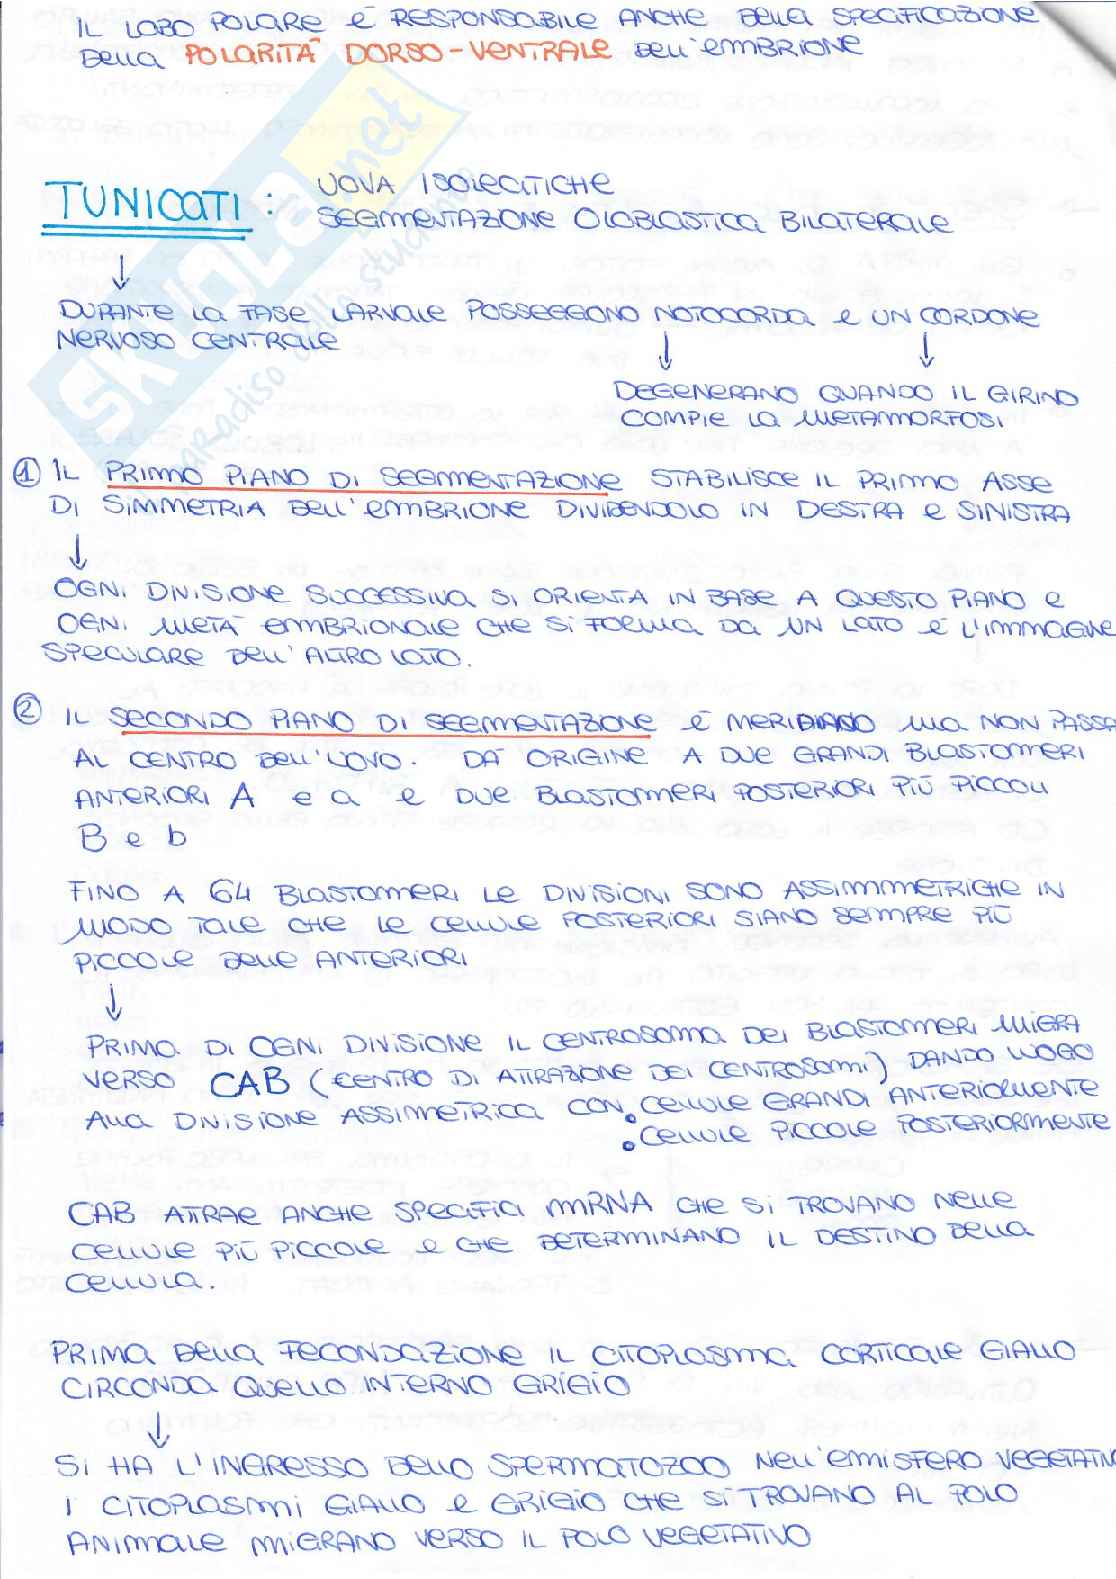 IL LOBO POLARE È RESPONSABILE ANCHE DELLA SPECIFICAZIONE
DELLA POLARITÀ DORSO-VENTRALE DELL'EMBRIONE
TUNICATI :
UOVA ISOLECITICHE
SEGMENTAZIONE OLOBLASTICA BILATERALE
↓
DURANTE LA FASE LARVALE POSSEGGONO NOTOCORDA E UN CORDONE
NERVOSO CENTRALE
↓ ↓
DEGENERANO QUANDO IL GIRINO
COMPIE LA METAMORFOSI
① IL PRIMO PIANO DI SEGMENTAZIONE STABILISCE IL PRIMO ASSE
DI SIMMETRIA DELL'EMBRIONE DIVIDENDOLO IN DESTRA E SINISTRA
↓
OGNI DIVISIONE SUCCESSIVA SI ORIENTA IN BASE A QUESTO PIANO E
OGNI METÀ EMBRIONALE CHE SI FORMA DA UN LATO È L'IMMAGINE
SPECULARE DELL'ALTRO LATO.
② IL SECONDO PIANO DI SEGMENTAZIONE È MERIDIANO MA NON PASSA
AL CENTRO DELL'UOVO. DÀ ORIGINE A DUE GRANDI BLASTOMERI
ANTERIORI A e a E DUE BLASTOMERI POSTERIORI PIÙ PICCOLI
B e b
FINO A 64 BLASTOMERI LE DIVISIONI SONO ASSIMMETRICHE IN
MODO TALE CHE LE CELLULE POSTERIORI SIANO SEMPRE PIÙ
PICCOLE DELLE ANTERIORI
↓
PRIMA DI OGNI DIVISIONE IL CENTROSOMA DEI BLASTOMERI MIGRA
VERSO CAB (CENTRO DI ATTRAZIONE DEI CENTROSOMI) DANDO LUOGO
ALLA DIVISIONE ASSIMETRICA CON • CELLULE GRANDI ANTERIORMENTE
• CELLULE PICCOLE POSTERIORMENTE
CAB ATTRAE ANCHE SPECIFICI mRNA CHE SI TROVANO NELLE
CELLULE PIÙ PICCOLE E CHE DETERMINANO IL DESTINO DELLA
CELLULA.
PRIMA DELLA FECONDAZIONE IL CITOPLASMA CORTICALE GIALLO
CIRCONDA QUELLO INTERNO GRIGIO
↓
SI HA L'INGRESSO DELLO SPERMATOZOO NELL'EMISFERO VEGETATIVO
I CITOPLASMI GIALLO E GRIGIO CHE SI TROVANO AL POLO
ANIMALE MIGRANO VERSO IL POLO VEGETATIVO
SKUOLA.net
paradiso dello studente